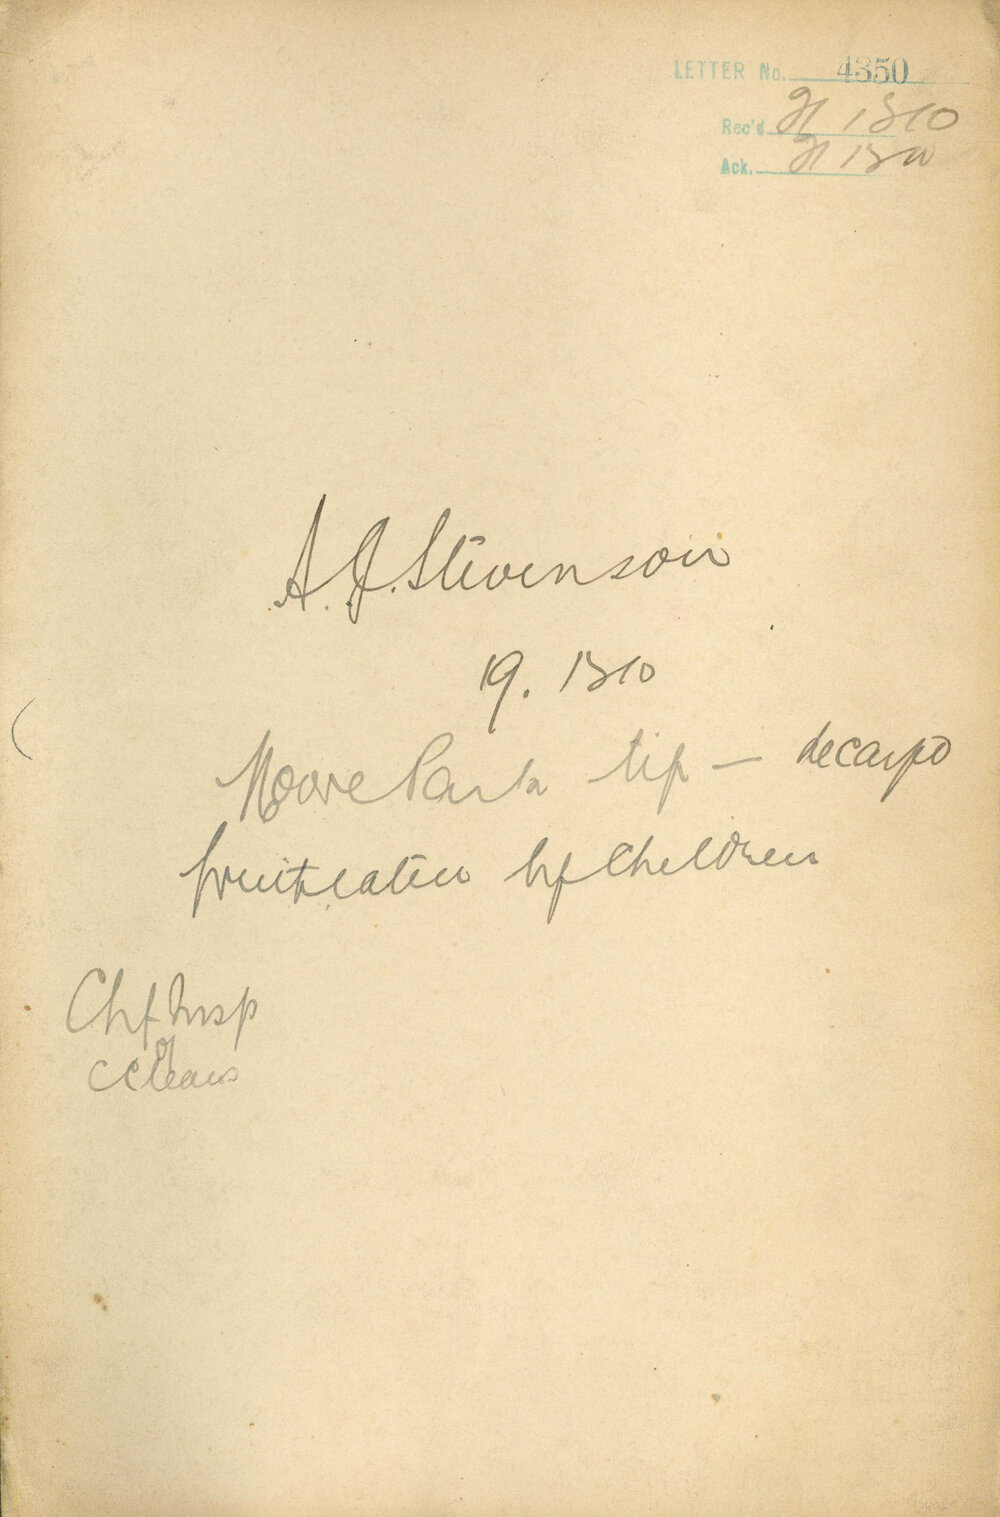 LETTER No. 4350
Rec'd 21 1310
Ack. 21 1310
A. J. Stevenson
19. 1310
Moore Park tip – decaypd
fruit eaten by children
Chf Insp
of
Cleans